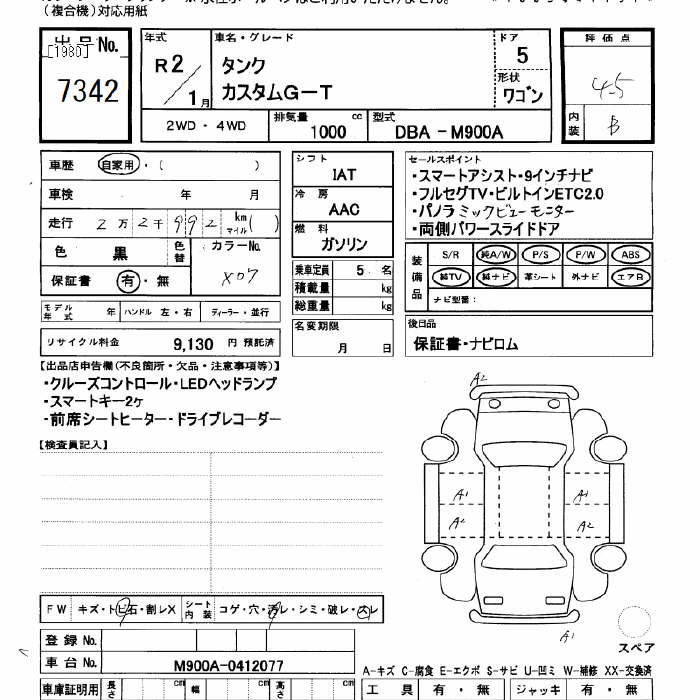 （複合機）対応用紙
出品No.
[1980]
7342
年式
R2/1月
車名・グレード
タンク
カスタムG-T
ドア
5
形状
ワゴン
2WD・4WD
排気量 1000 cc
型式 DBA-M900A
評価点
4.5
内装 B
車歴 自家用・( )
車検 年 月
走行 2万2千992 km マイル( )
色 黒
色替
カラーNo.
X07
保証書 有・無
モデル年式 年
ハンドル 左・右
ディーラー・並行
リサイクル料金 9,130 円 預託済
シフト
IAT
冷房
AAC
燃料
ガソリン
乗車定員 5 名
積載量 kg
総重量 kg
名変期限
月 日
セールスポイント
・スマートアシスト・9インチナビ
・フルセグTV・ビルトインETC2.0
・パノラミックビューモニター
・両側パワースライドドア
装備品
S/R 純A/W P/S P/W ABS
純TV 純ナビ 革シート 外ナビ エアB
ナビ型番：
後日品
保証書・ナビロム
【出品店申告欄(不良箇所・欠品・注意事項等)】
・クルーズコントロール・LEDヘッドランプ
・スマートキー2ヶ
・前席シートヒーター・ドライブレコーダー
【検査員記入】
A2
A1 A1
A2 A2
A1
スペア
FW キズ・トビ石・割レX
シート内装 コゲ・穴・汚レ・シミ・破レ・スレ
登録No.
車台No. M900A-0412077
A-キズ C-腐食 E-エクボ S-サビ U-凹ミ W-補修 XX-交換済
車庫証明用 長さ cm 幅 cm 高さ cm
工具 有・無 ジャッキ 有・無